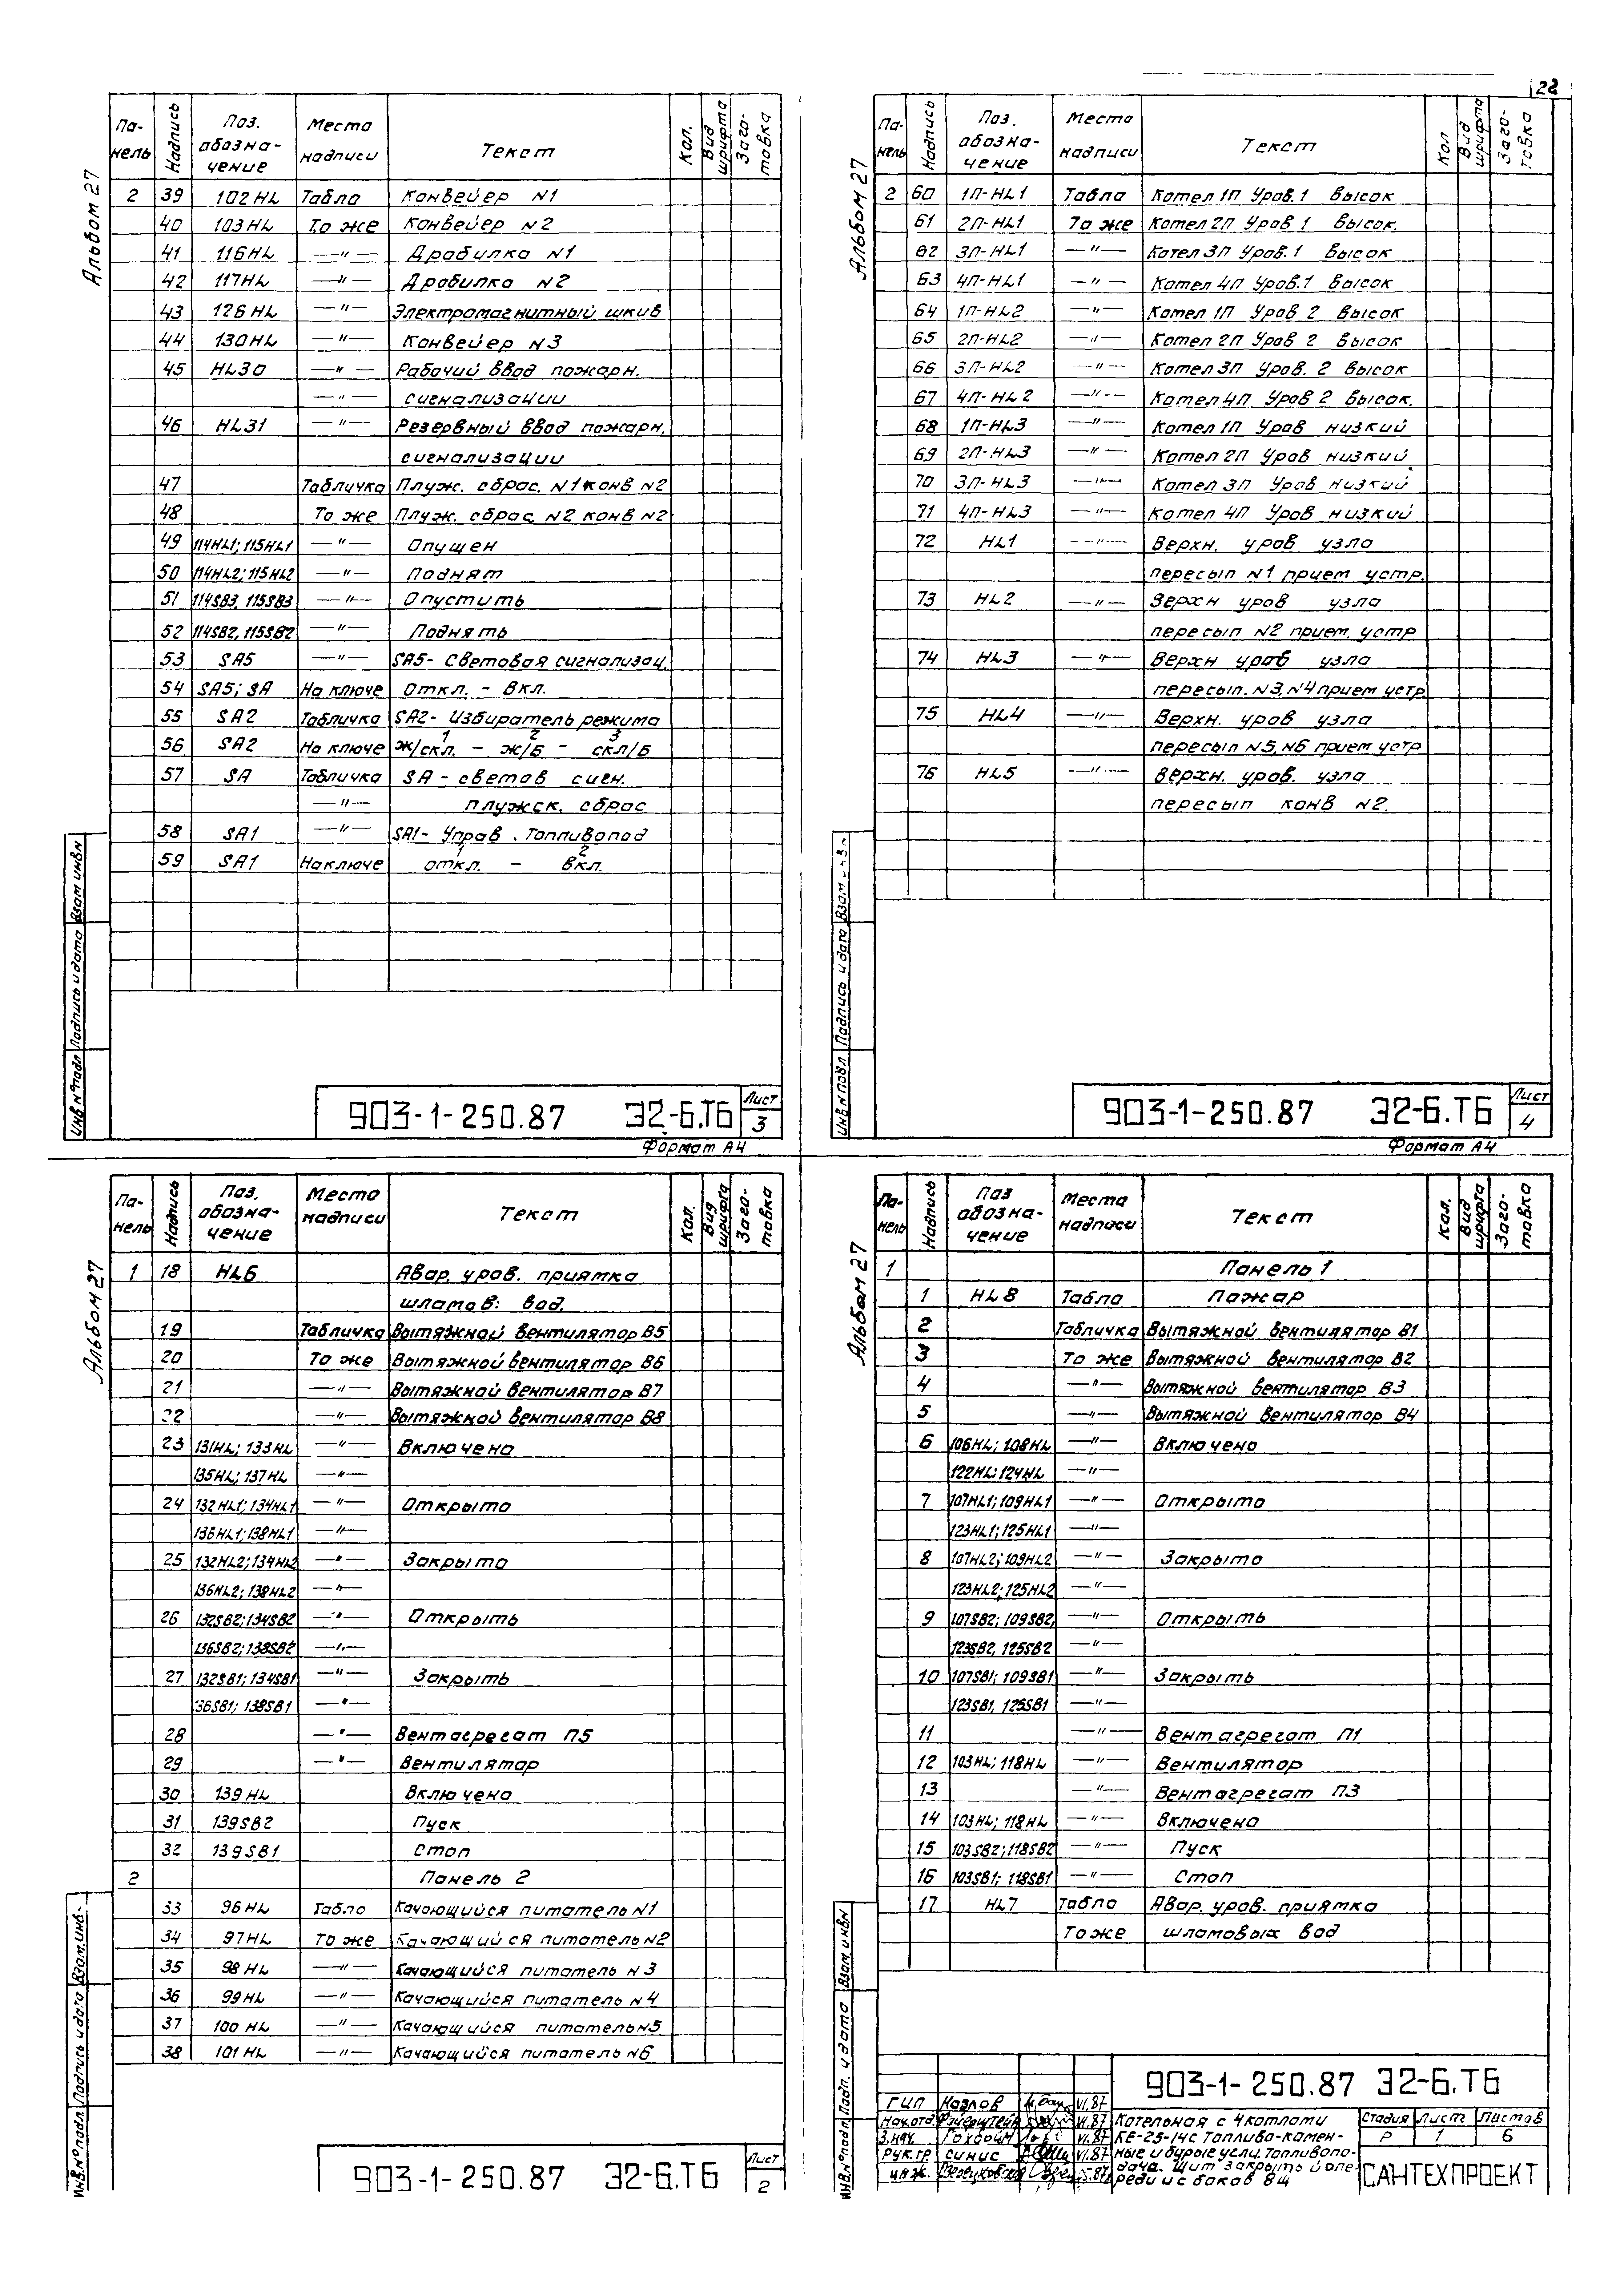 22
Альбом 27
Па-нель Надпись Поз. обозна-чение Место надписи Текст Кол. Вид шрифта Заго-товка
2 39 102HL Табло Конвейер N1
40 103HL То же Конвейер N2
41 116HL —"— Дробилка N1
42 117HL —"— Дробилка N2
43 126HL —"— Электромагнитный шкив
44 130HL —"— Конвейер N3
45 HL30 —"— Рабочий ввод пожарн.
—"— сигнализации
46 HL31 —"— Резервный ввод пожарн.
сигнализации
47 Табличка Плуж. сброс. N1 конв N2
48 То же Плуж. сброс. N2 конв N2
49 114HL1; 115HL1 —"— Опущен
50 114HL2; 115HL2 —"— Поднят
51 114SB3, 115SB3 —"— Опустить
52 114SB2, 115SB2 —"— Поднять
53 SA5 —"— SA5- Световая сигнализац.
54 SA5; SA На ключе Откл. - Вкл.
55 SA2 Табличка SA2- Избиратель режима
1 2 3
56 SA2 На ключе ж/скл. - ж/Б - скл/Б
57 SA Табличка SA - светов сигн.
—"— плужск. сброс
58 SA1 —"— SA1- Управ. Топливопод
1 2
59 SA1 На ключе откл. - Вкл.
Инв N°подл Подпись и дата Взам инвN
903-1-250.87 Э2-6.ТБ Лист 3
Формат А4
Альбом 27
Па-нель Надпись Поз. обозна-чение Место надписи Текст Кол Вид шрифта Заго-товка
2 60 1П-HL1 Табло Котел 1П Уров.1 высок
61 2П-HL1 То же Котел 2П Уров 1 высок.
62 3П-HL1 —"— Котел 3П Уров.1 высок
63 4П-HL1 —"— Котел 4П Уров.1 высок
64 1П-HL2 —"— Котел 1П Уров 2 высок
65 2П-HL2 —"— Котел 2П Уров 2 высок
66 3П-HL2 —"— Котел 3П Уров. 2 высок
67 4П-HL2 —"— Котел 4П Уров 2 высок.
68 1П-HL3 —"— Котел 1П Уров низкий
69 2П-HL3 —"— Котел 2П Уров низкий
70 3П-HL3 —"— Котел 3П Уров низкий
71 4П-HL3 —"— Котел 4П Уров низкий
72 HL1 —"— Верхн. уров узла
пересып N1 прием устр.
73 HL2 —"— Верхн уров узла
пересып N2 прием. устр
74 HL3 —"— Верхн уров узла
пересып. N3, N4 прием устр
75 HL4 —"— Верхн. уров узла
пересып N5, N6 прием устр
76 HL5 —"— Верхн. уров. узла
пересып конв N2.
Инв N подл Подпись и дата Взам.
903-1-250.87 Э2-6.ТБ Лист 4
Формат А4
Альбом 27
Па-нель Надпись Поз. обозна-чение Место надписи Текст Кол. Вид шрифта Заго-товка
1 18 HL6 Авар. уров. приямка
шламов. вод.
19 Табличка Вытяжной вентилятор В5
20 То же Вытяжной вентилятор В6
21 —"— Вытяжной вентилятор В7
22 —"— Вытяжной вентилятор В8
23 131HL; 133HL —"— Включено
135HL; 137HL —"—
24 132HL1; 134HL1 —"— Открыто
136HL1; 138HL1 —"—
25 132HL2; 134HL2 —"— Закрыто
136HL2; 138HL2 —"—
26 132SB2; 134SB2 —"— Открыть
136SB2; 138SB2 —"—
27 132SB1; 134SB1 —"— Закрыть
136SB1; 138SB1 —"—
28 —"— Вентагрегат П5
29 —"— Вентилятор
30 139HL Включено
31 139SB2 Пуск
32 139SB1 Стоп
2 Панель 2
33 96HL Табло Качающийся питатель N1
34 97HL То же Качающийся питатель N2
35 98HL —"— Качающийся питатель N3
36 99HL —"— Качающийся питатель N4
37 100HL —"— Качающийся питатель N5
38 101HL —"— Качающийся питатель N6
Инв.N°подл Подпись и дата Взам.инв.
903-1-250.87 Э2-6.ТБ Лист 2
Альбом 27
Па-нель Надпись Поз обозна-чение Место надписи Текст Кол. Вид шрифта Заго-товка
1 Панель 1
1 HL8 Табло Пожар
2 Табличка Вытяжной вентилятор В1
3 То же Вытяжной вентилятор В2
4 —"— Вытяжной вентилятор В3
5 —"— Вытяжной вентилятор В4
6 106HL; 108HL —"— Включено
122HL; 124HL —"—
7 107HL1; 109HL1 —"— Открыто
123HL1; 125HL1 —"—
8 107HL2; 109HL2 —"— Закрыто
123HL2; 125HL2 —"—
9 107SB2; 109SB2 —"— Открыть
123SB2, 125SB2 —"—
10 107SB1; 109SB1 —"— Закрыть
123SB1, 125SB1 —"—
11 —"— Вентагрегат П1
12 103HL; 118HL —"— Вентилятор
13 —"— Вентагрегат П3
14 103HL; 118HL —"— Включено
15 103SB2; 118SB2 —"— Пуск
16 103SB1; 118SB1 —"— Стоп
17 HL7 Табло Авар. уров. приямка
То же шламовых вод
Инв.N°подл Подп. и дата Взам инвN
903-1-250.87 Э2-6.ТБ
ГИП Козлов VI.87
Нач.отд. VI.87
VI.87
Рук.гр. Синис VI.87
Инж.
Котельная с 4 котлами
КЕ-25-14с Топливо-камен-
ные и бурые угли, Топливопо-
дача. Щит закрытый спе-
реди и с боков 8щ
Стадия Лист Листов
Р 1 6
САНТЕХПРОЕКТ